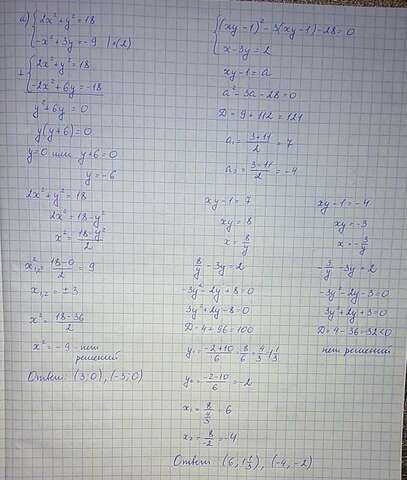 а) { 2x² + y² = 18
{ -x² + 3y = -9 | ·(2)
+ { 2x² + y² = 18
{ -2x² + 6y = -18
y² + 6y = 0
y(y+6) = 0
y=0 или y+6=0
y=-6
2x² + y² = 18
2x² = 18-y²
x² = (18-y²)/2
x²₁,₂ = (18-0)/2 = 9
x₁,₂ = ±3
x² = (18-36)/2
x² = -9 - нет
решений
Ответ: (3;0), (-3;0)
{ (xy-1)² - 3(xy-1) - 28 = 0
{ x-3y = 2
xy-1 = a
a² - 3a - 28 = 0
D = 9 + 112 = 121
a₁ = (3+11)/2 = 7
a₂ = (3-11)/2 = -4
xy-1 = 7
xy = 8
x = 8/y
8/y - 3y = 2
-3y² - 2y + 8 = 0
3y² + 2y - 8 = 0
D = 4 + 96 = 100
y₁ = (-2+10)/6 = 8/6 = 4/3 = 1⅓
y₂ = (-2-10)/6 = -2
x₁ = 8/(4/3) = 6
x₂ = 8/-2 = -4
Ответ: (6, 1⅓), (-4, -2)
xy-1 = -4
xy = -3
x = -3/y
-3/y - 3y = 2
-3y² - 2y - 3 = 0
3y² + 2y + 3 = 0
D = 4 - 36 = -32 < 0
нет решений